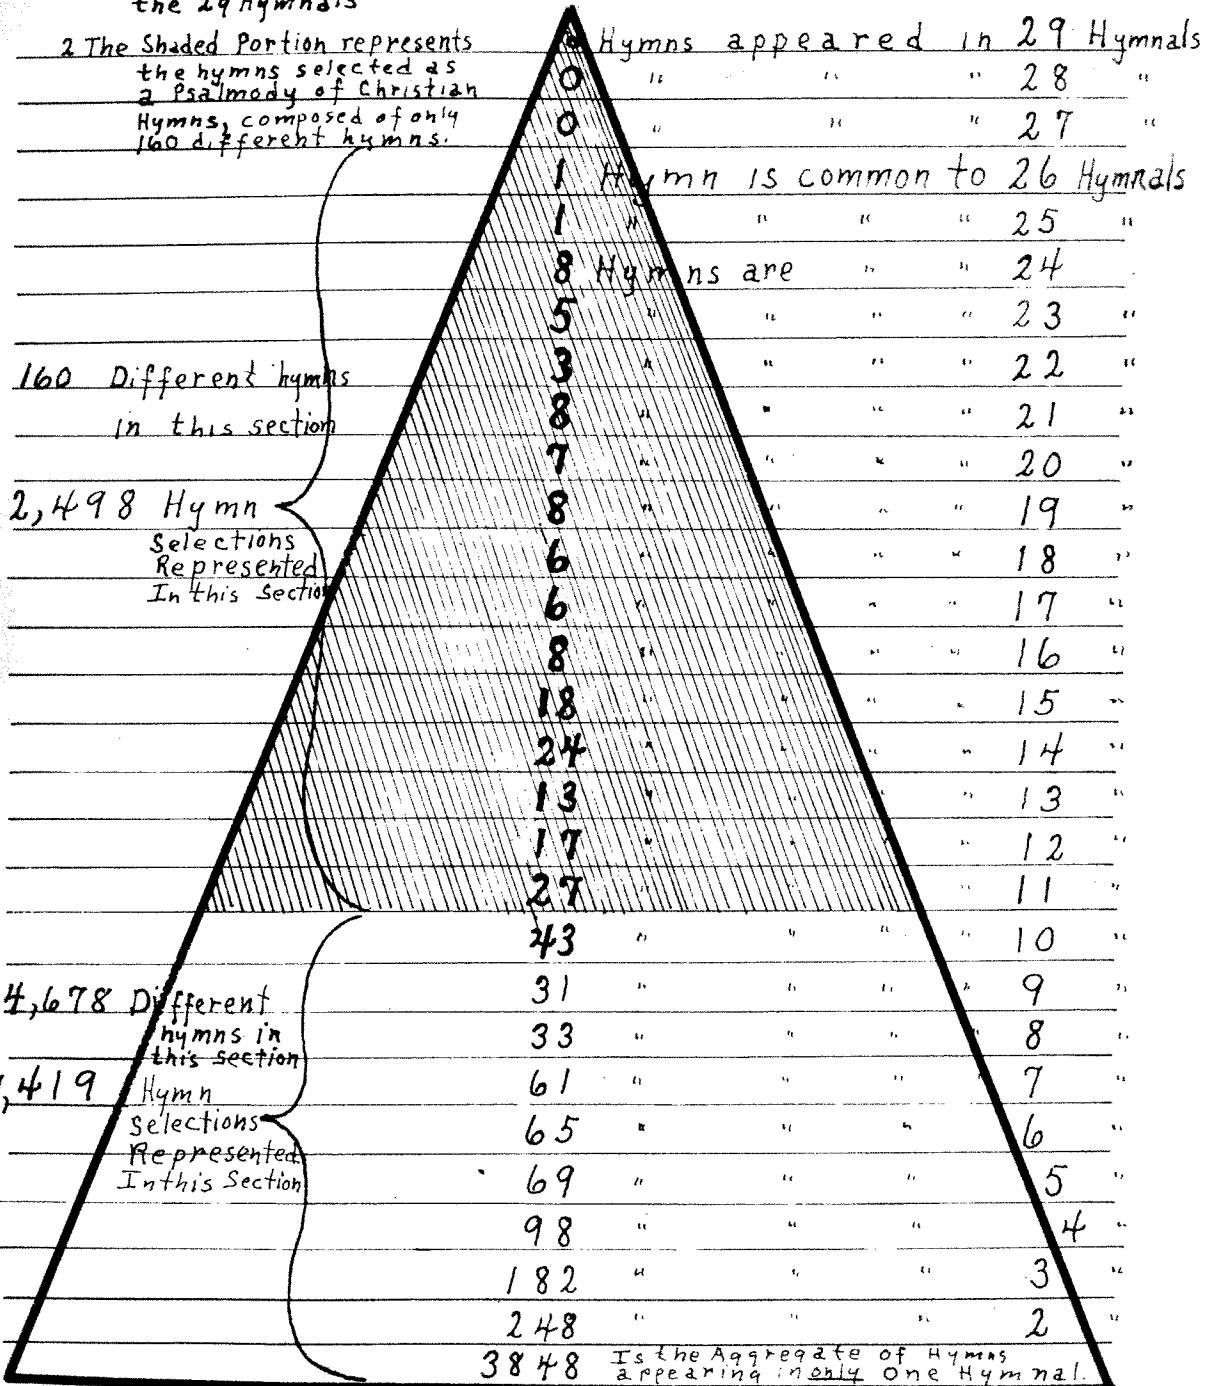 the 29 Hymnals
2 The Shaded Portion represents
the hymns selected as
a Psalmody of Christian
Hymns, composed of only
160 different hymns.
160 Different hymns
in this section
2,498 Hymn
Selections
Represented
In this Section
4,678 Different
hymns in
this section
,419 Hymn
Selections
Represented
In this Section
Hymns appeared in 29 Hymnals
0 " " " 28 "
0 " " " 27 "
1 Hymn is common to 26 Hymnals
1 " " " " 25 "
8 Hymns are " " 24
5 " " " " 23 "
3 " " " " 22 "
8 " " " " 21 "
7 " " " " 20 "
8 " " " " 19 "
6 " " " " 18 "
6 " " " " 17 "
8 " " " " 16 "
18 " " " " 15 "
24 " " " " 14 "
13 " " " 13 "
17 " " " 12 "
27 " " 11 "
43 " " " " 10 "
31 " " " " 9 "
33 " " " " 8 "
61 " " " 7 "
65 " " " 6 "
69 " " " 5 "
98 " " " 4 "
182 " " " 3 "
248 " " " 2 "
3848 Is the Aggregate of Hymns
appearing in only One Hymnal.